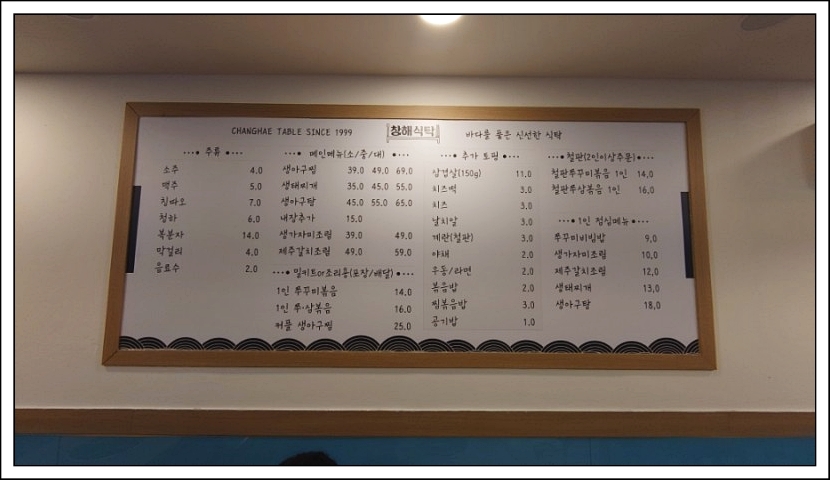 CHANGHAE TABLE SINCE 1999 창해식탁 바다를 품은 신선한 식탁
주류
소주 4.0
맥주 5.0
칭따오 7.0
청하 6.0
복분자 14.0
막걸리 4.0
음료수 2.0
메인메뉴(소/중/대)
생아구찜 39.0 49.0 69.0
생태찌개 35.0 45.0 55.0
생아구탕 45.0 55.0 65.0
내장추가 15.0
생가자미조림 39.0 49.0
제주갈치조림 49.0 59.0
밀키트or조리용(포장/배달)
1인 쭈꾸미볶음 14.0
1인 쭈.삼볶음 16.0
커플 생아구찜 25.0
추가 토핑
삼겹살(150g) 11.0
치즈떡 3.0
치즈 3.0
날치알 3.0
계란(철판) 3.0
야채 2.0
우동/라면 2.0
볶음밥 2.0
찜볶음밥 3.0
공기밥 1.0
철판(2인이상주문)
철판쭈꾸미볶음 1인 14,0
철판쭈삼볶음 1인 16,0
1인 점심메뉴
쭈꾸미비빔밥 9,0
생가자미조림 10,0
제주갈치조림 12,0
생태찌개 13,0
생아구탕 18,0